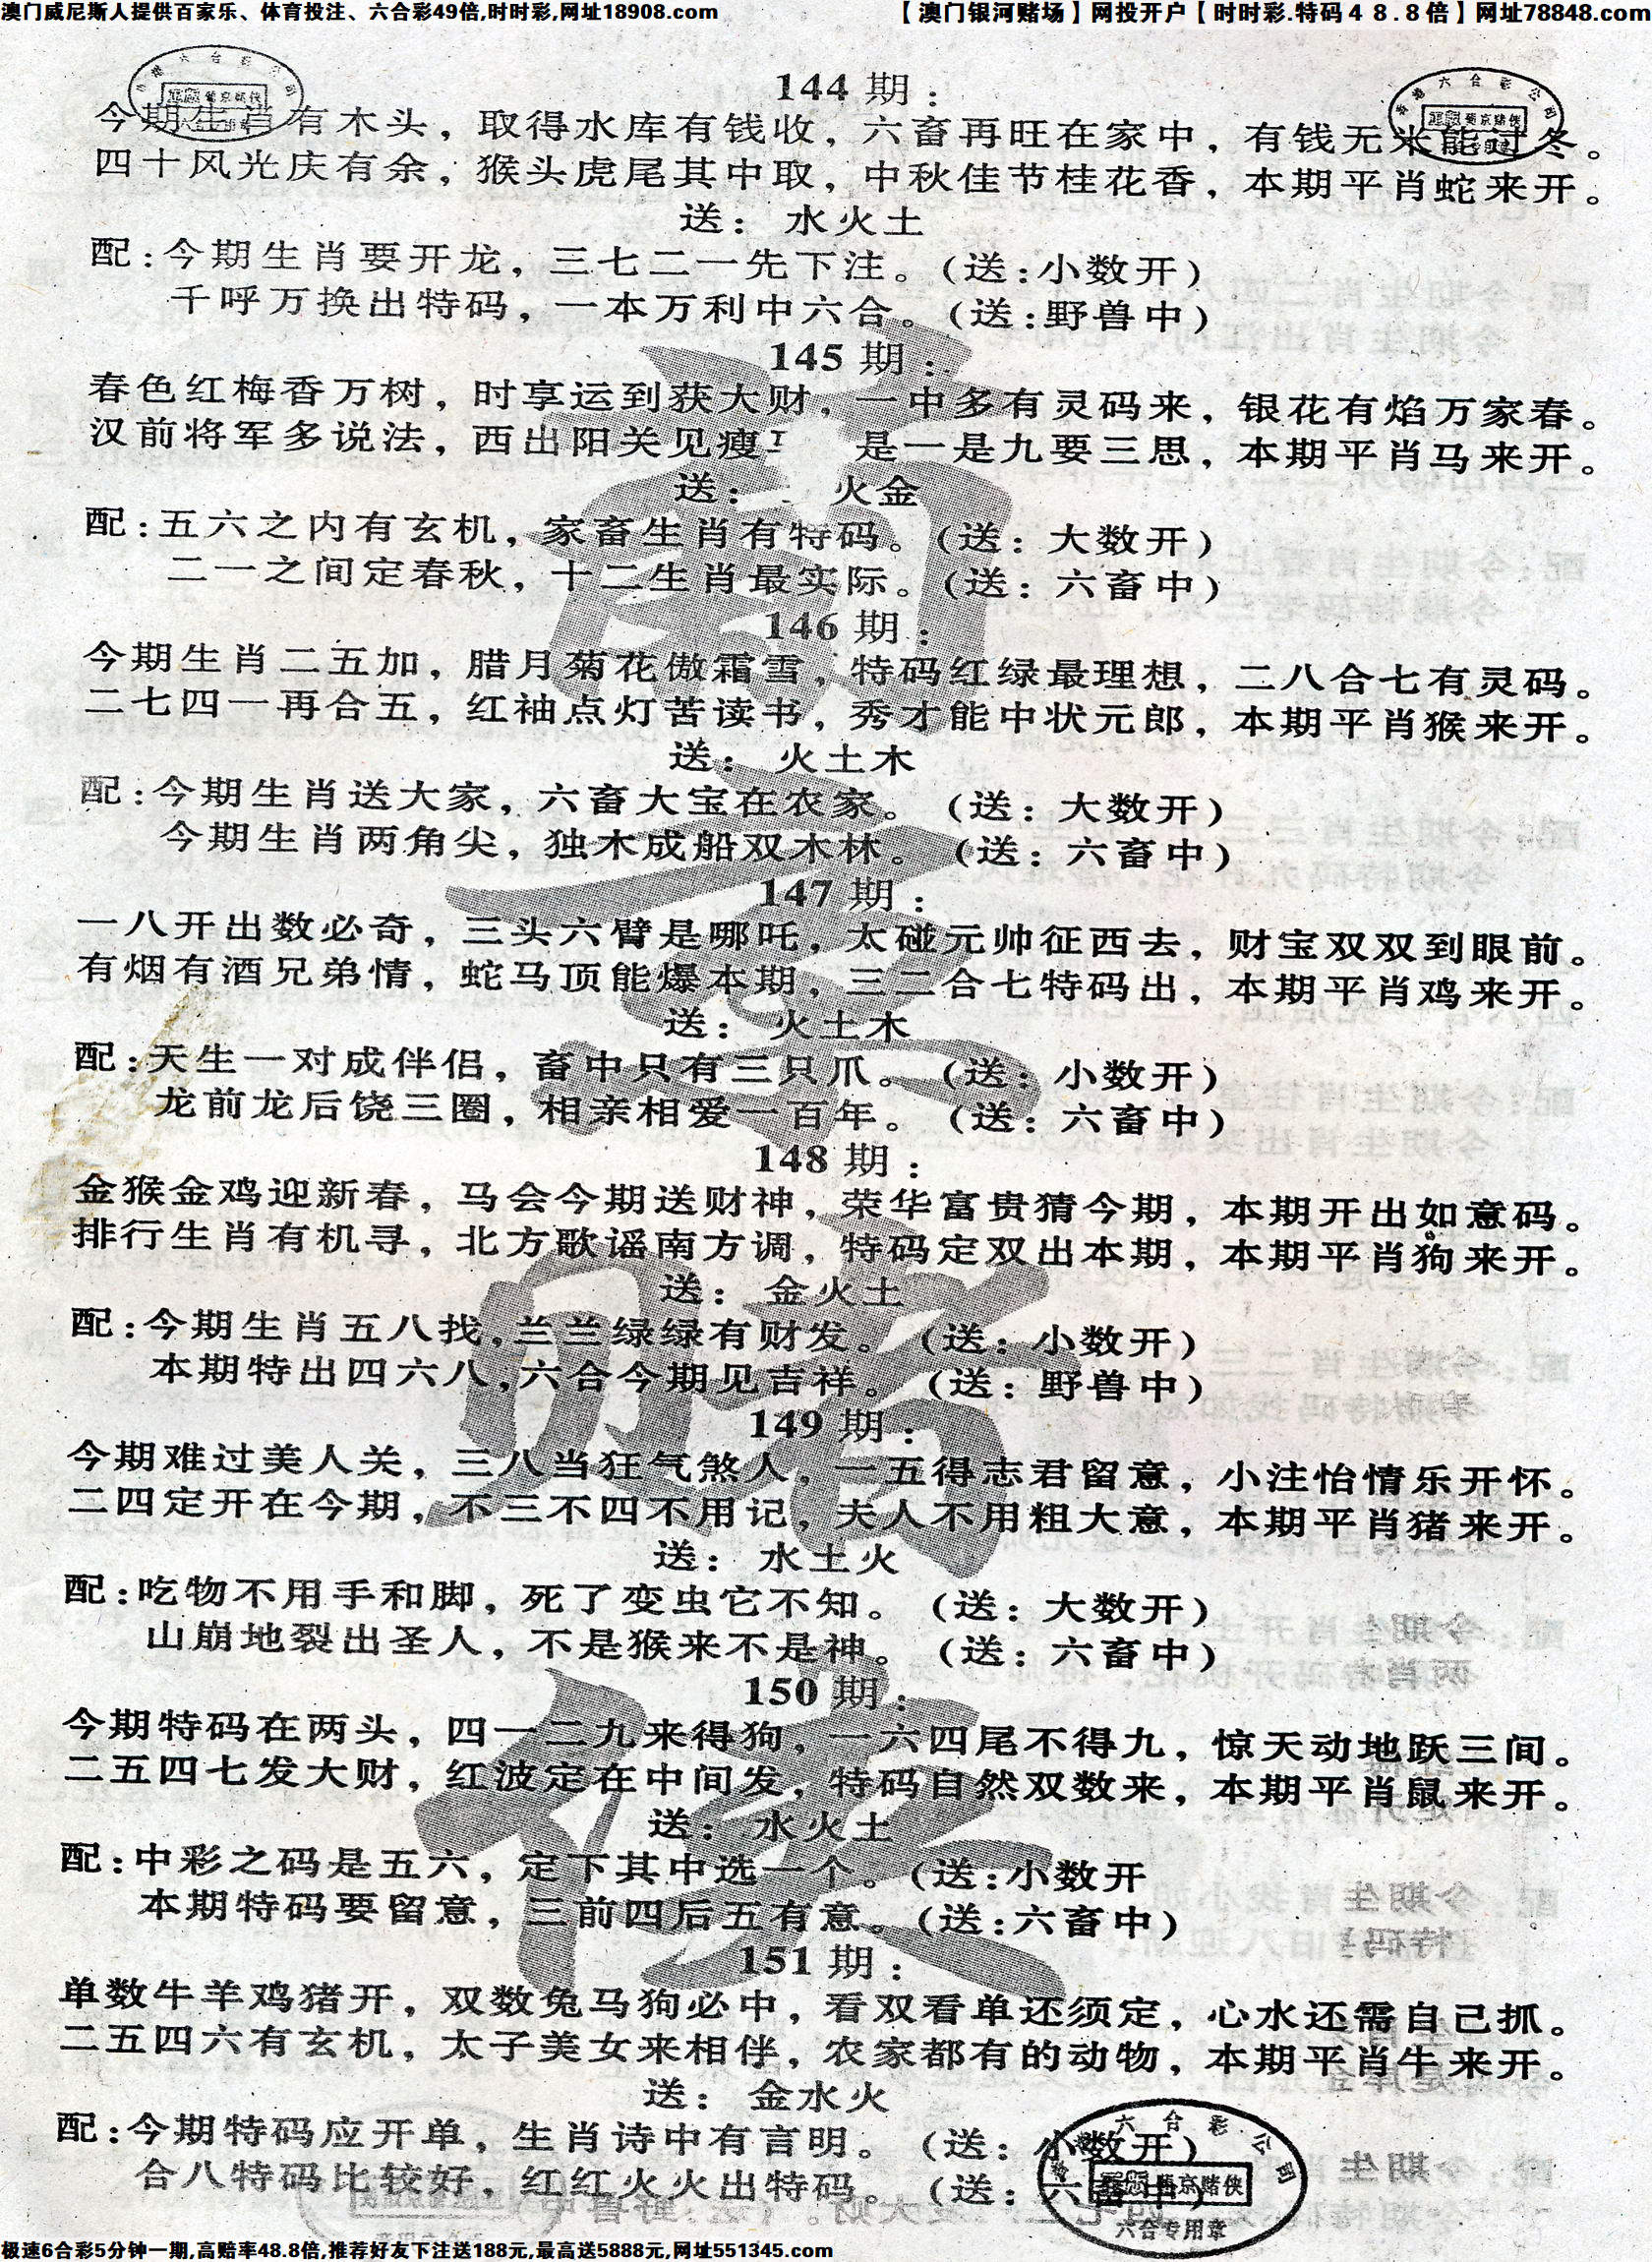 澳门威尼斯人提供百家乐、体育投注、六合彩49倍,时时彩,网址18908.com
【澳门银河赌场】网投开户【时时彩.特码48.8倍】网址78848.com
144期：
今期生肖有木头，取得水库有钱收，六畜再旺在家中，有钱无米能过冬。
四十风光庆有余，猴头虎尾其中取，中秋佳节桂花香，本期平肖蛇来开。
送：水火土
配:今期生肖要开龙，三七二一先下注。(送:小数开)
千呼万换出特码，一本万利中六合。(送:野兽中)
145期：
春色红梅香万树，时享运到获大财，一中多有灵码来，银花有焰万家春。
汉前将军多说法，西出阳关见瘦 是一是九要三思，本期平肖马来开。
送： 火金
配:五六之内有玄机，家畜生肖有特码。(送：大数开)
二一之间定春秋，十二生肖最实际。(送：六畜中)
146期：
今期生肖二五加，腊月菊花傲霜雪，特码红绿最理想，二八合七有灵码。
二七四一再合五，红袖点灯苦读书，秀才能中状元郎，本期平肖猴来开。
送：火土木
配:今期生肖送大家，六畜大宝在农家。(送：大数开)
今期生肖两角尖，独木成船双木林。(送：六畜中)
147期：
一八开出数必奇，三头六臂是哪吒，太碰元帅征西去，财宝双双到眼前。
有烟有酒兄弟情，蛇马顶能爆本期，三二合七特码出，本期平肖鸡来开。
送：火土木
配:天生一对成伴侣，畜中只有三只爪。(送：小数开)
龙前龙后饶三圈，相亲相爱一百年。(送：六畜中)
148期：
金猴金鸡迎新春，马会今期送财神，荣华富贵猜今期，本期开出如意码。
排行生肖有机寻，北方歌谣南方调，特码定双出本期，本期平肖狗来开。
送：金火土
配:今期生肖五八找,兰兰绿绿有财发。(送：小数开)
本期特出四六八,六合今期见吉祥。(送：野兽中)
149期：
今期难过美人关，三八当狂气煞人，一五得志君留意，小注怡情乐开怀。
二四定开在今期，不三不四不用记，夫人不用粗大意，本期平肖猪来开。
送：水土火
配:吃物不用手和脚，死了变虫它不知。(送：大数开)
山崩地裂出圣人，不是猴来不是神。(送：六畜中)
150期：
今期特码在两头，四一二九来得狗，一六四尾不得九，惊天动地跃三间。
二五四七发大财，红波定在中间发，特码自然双数来，本期平肖鼠来开。
送：水火土
配:中彩之码是五六，定下其中选一个。(送:小数开
本期特码要留意，三前四后五有意。(送:六畜中)
151期：
单数牛羊鸡猪开，双数兔马狗必中，看双看单还须定，心水还需自己抓。
二五四六有玄机，太子美女来相伴，农家都有的动物，本期平肖牛来开。
送：金水火
配:今期特码应开单，生肖诗中有言明。(送：小数开)
合八特码比较好，红红火火出特码。(送：六畜中)
六合专用章
极速6合彩5分钟一期,高赔率48.8倍,推荐好友下注送188元,最高送5888元,网址551345.com